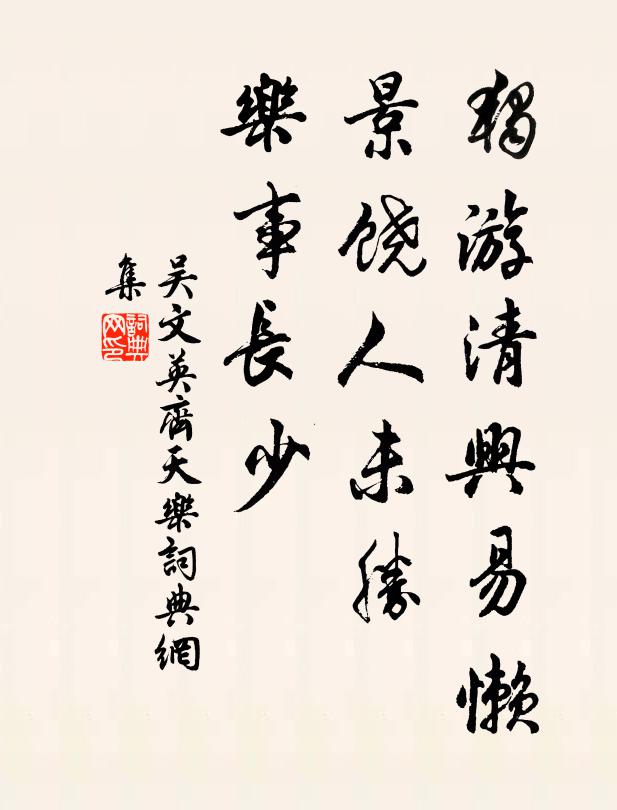 獨游清興易懒
景饶人未勝
樂事長少
吴文英齊天樂詞典網
集
詞典
网印